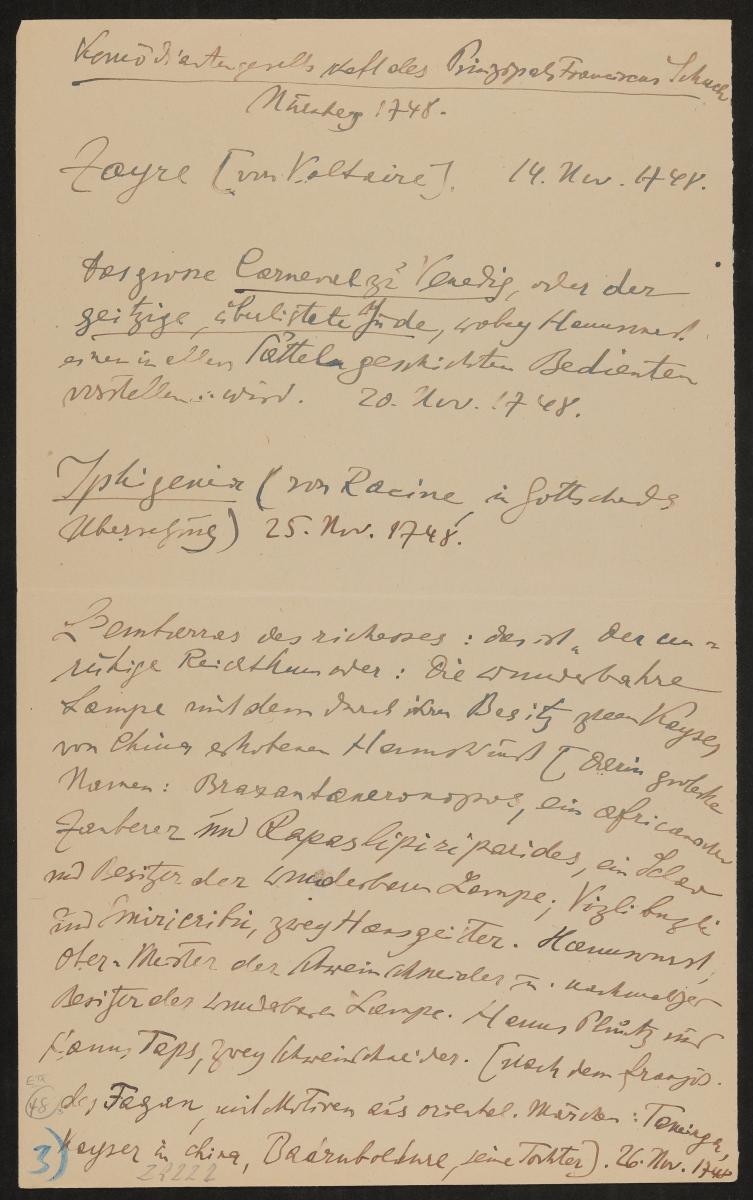 Komödiantengesellschaft des Prinzipals Franciscus Schuch
Nürnberg 1748.
Zayre [von Voltaire]. 14. Nov. 1748.
Das grosse Carneval zu Venedig, oder der
geitzige, überlistete Jude, wobey Hannswurst
einen in allen Sätteln geschickten Bedienten
vorstellen wird. 20. Nov. 1748.
Iphigenia (von Racine, in Gottscheds
Übersetzung) 25. Nov. 1748.
L'embarras des richesses: das ist „Der un-
ruhige Reichthum oder: Die wunderbahre
Lampe mit dem durch ihren Besitz zum Kayser
von China erhobenen Hannswurst [Darin groteske
Namen: Braxantaneronopos, ein africanischer
Zauberer und Rapaslipiriparides, ein Sclav
und Besitzer der wunderbaren Lampe; Vizlibuzli
und Smiricribi, zwey Hausgeister. Hannswurst,
Ober-Meister der Schweinschneider u. nachmaliger
Besitzer der wunderbaren Lampe. Hanns Pluntz und
Hanns Taps, zwey Schweinschneider. [nach dem französ.
des Fagan, mit Motiven aus oriental. Märchen: Taminga,
Kayser in China, Baarnboldure, seine Tochter]. 26. Nov. 1748
48
3)
22222